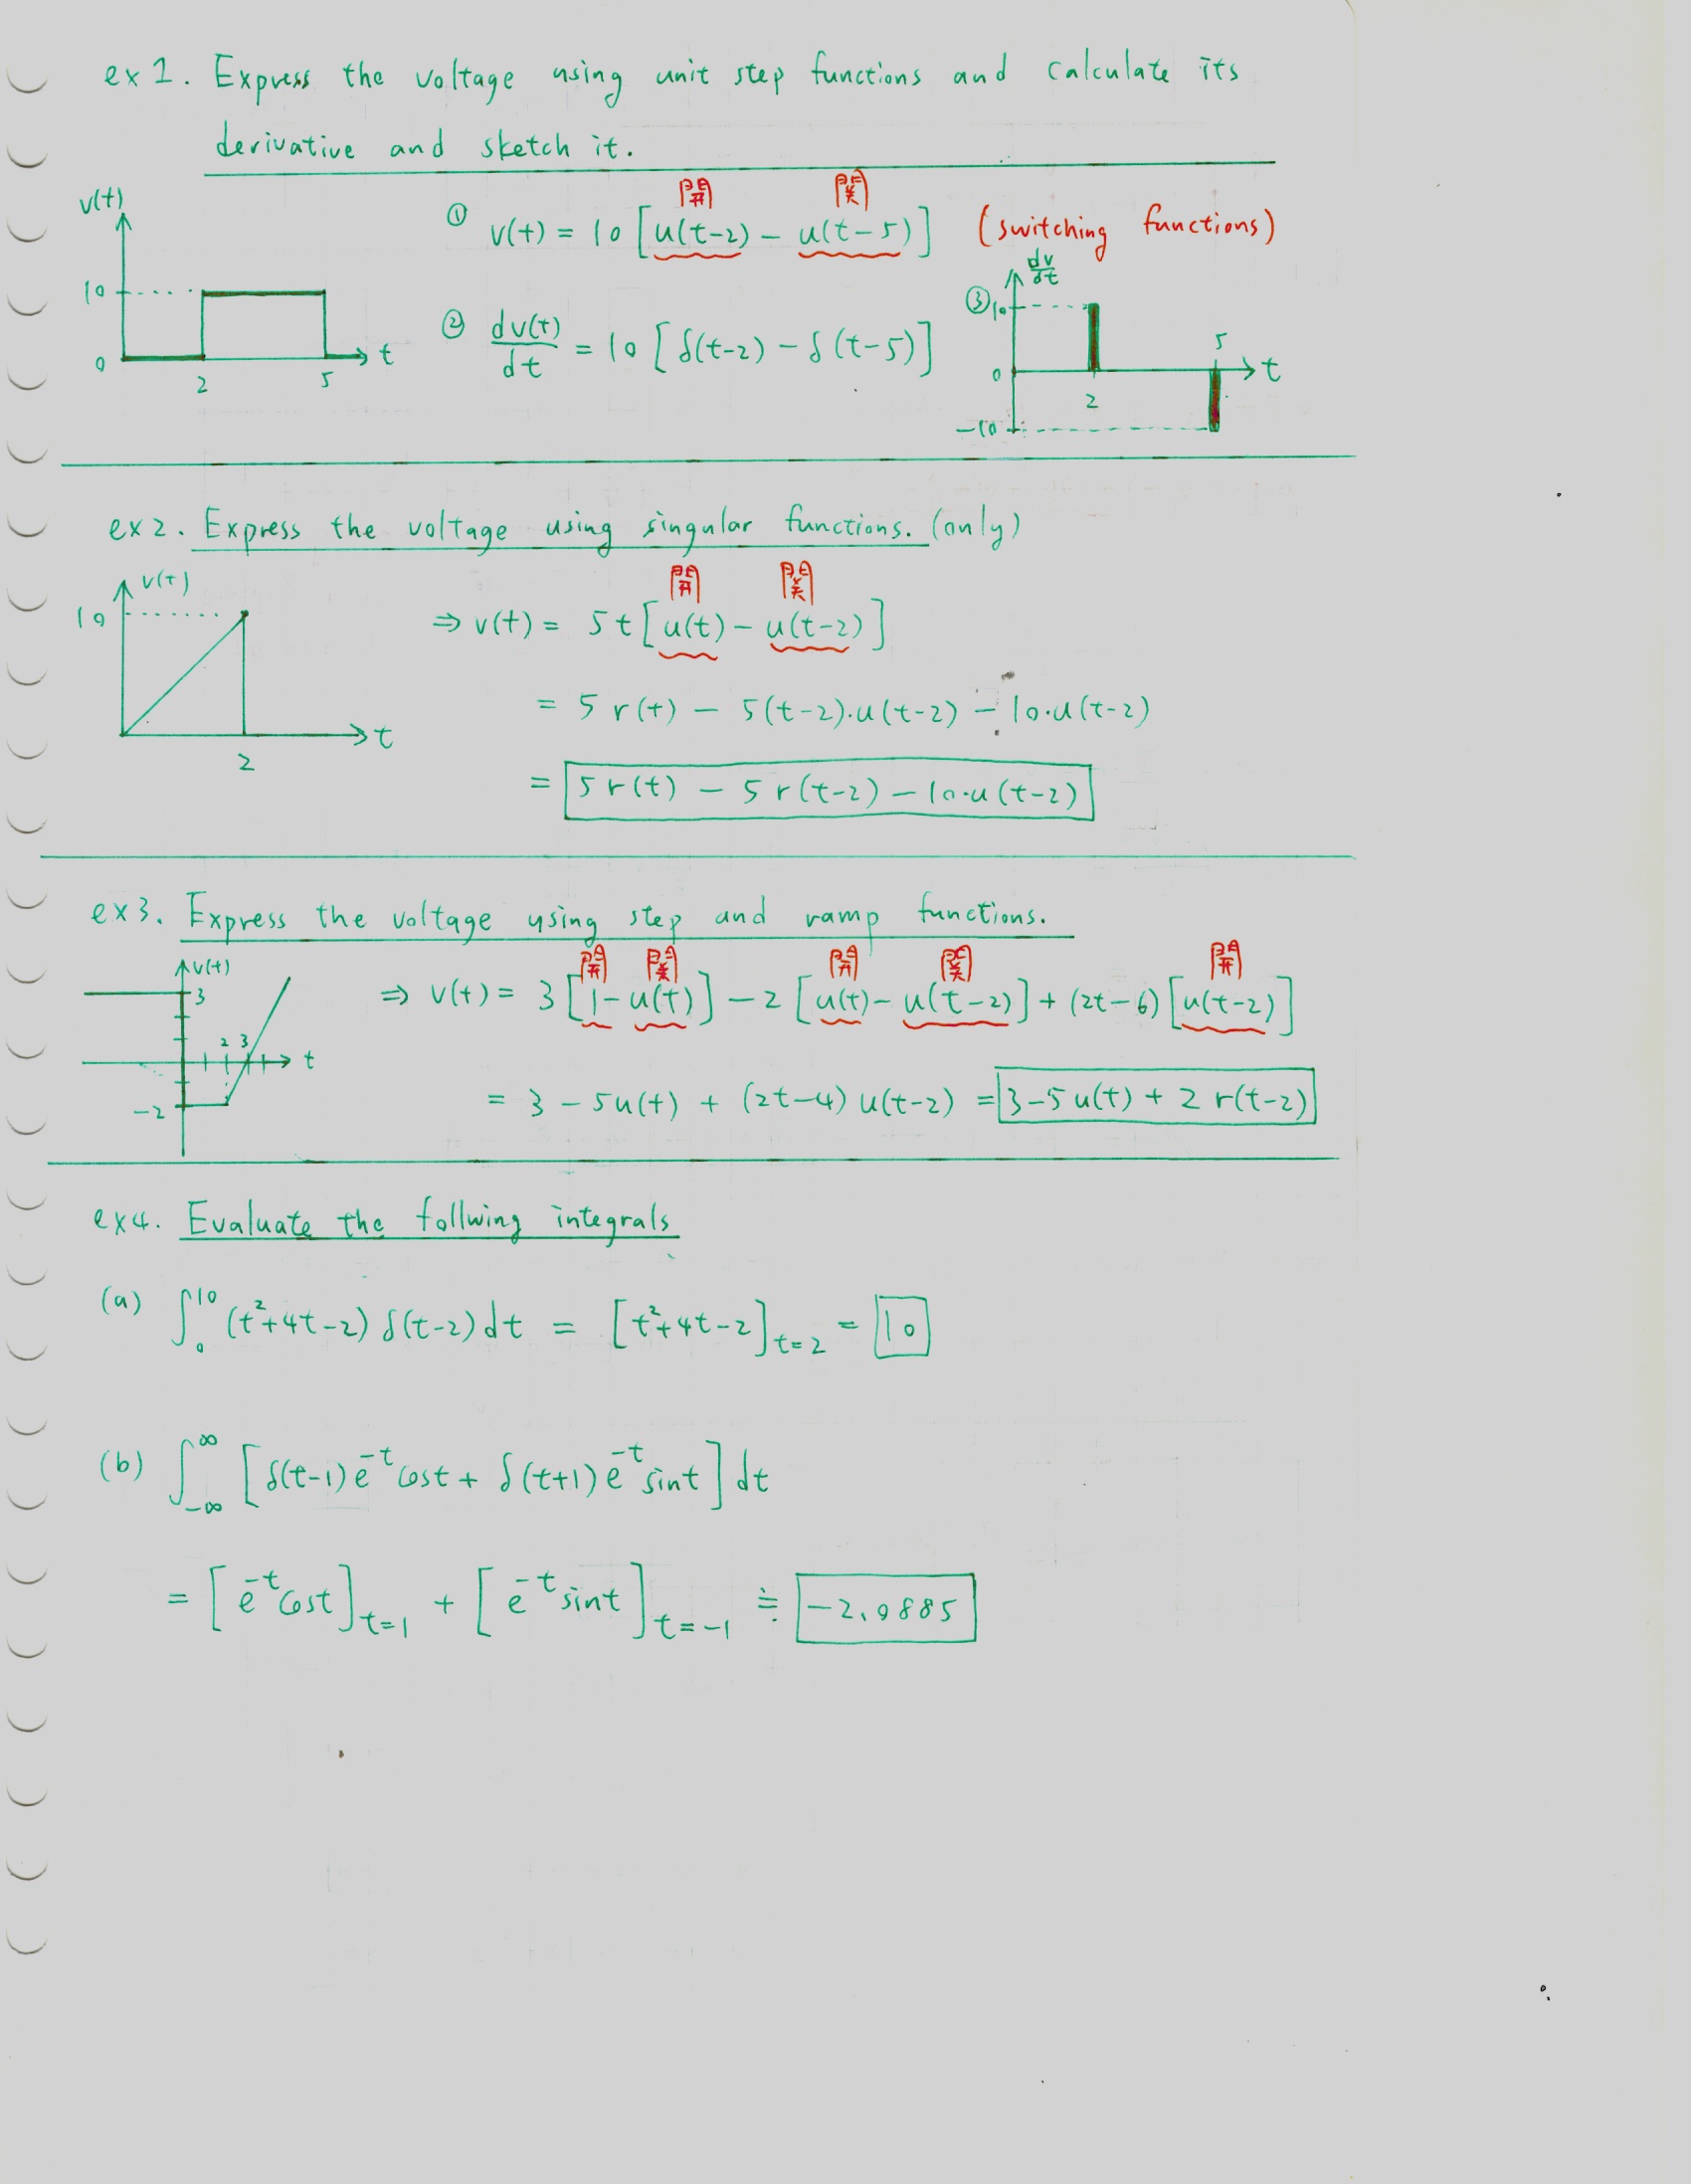 ex 1. Express the voltage using unit step functions and calculate its
derivative and sketch it.
v(t)
10
0
2
5
t
開 関
① v(t) = 10 [u(t-2) - u(t-5)] (switching functions)
② dv(t)/dt = 10 [δ(t-2) - δ(t-5)]
③ dv/dt
10
0
-10
2
5
t
ex 2. Express the voltage using singular functions. (only)
v(t)
10
2
t
開 関
⇒ v(t) = 5t [u(t) - u(t-2)]
= 5 r(t) - 5(t-2)·u(t-2) - 10·u(t-2)
= 5 r(t) - 5 r(t-2) - 10·u(t-2)
ex3. Express the voltage using step and ramp functions.
v(t)
3
2 3
t
-2
開 関 開 関 開
⇒ v(t) = 3 [1 - u(t)] - 2 [u(t) - u(t-2)] + (2t-6) [u(t-2)]
= 3 - 5u(t) + (2t-4) u(t-2) = 3 - 5u(t) + 2 r(t-2)
ex4. Evaluate the follwing integrals
(a) ∫₀¹⁰ (t²+4t-2) δ(t-2) dt = [t²+4t-2]t=2 = 10
(b) ∫_-∞^∞ [δ(t-1) e^-t cost + δ(t+1) e^-t sint] dt
= [e^-t cost]t=1 + [e^-t sint]t=-1 ≒ -2.0885